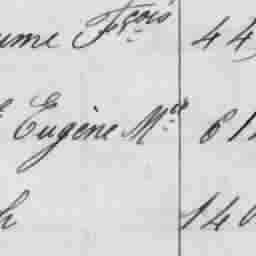 ume Fçois 44
Eugène Mie 61
h 140